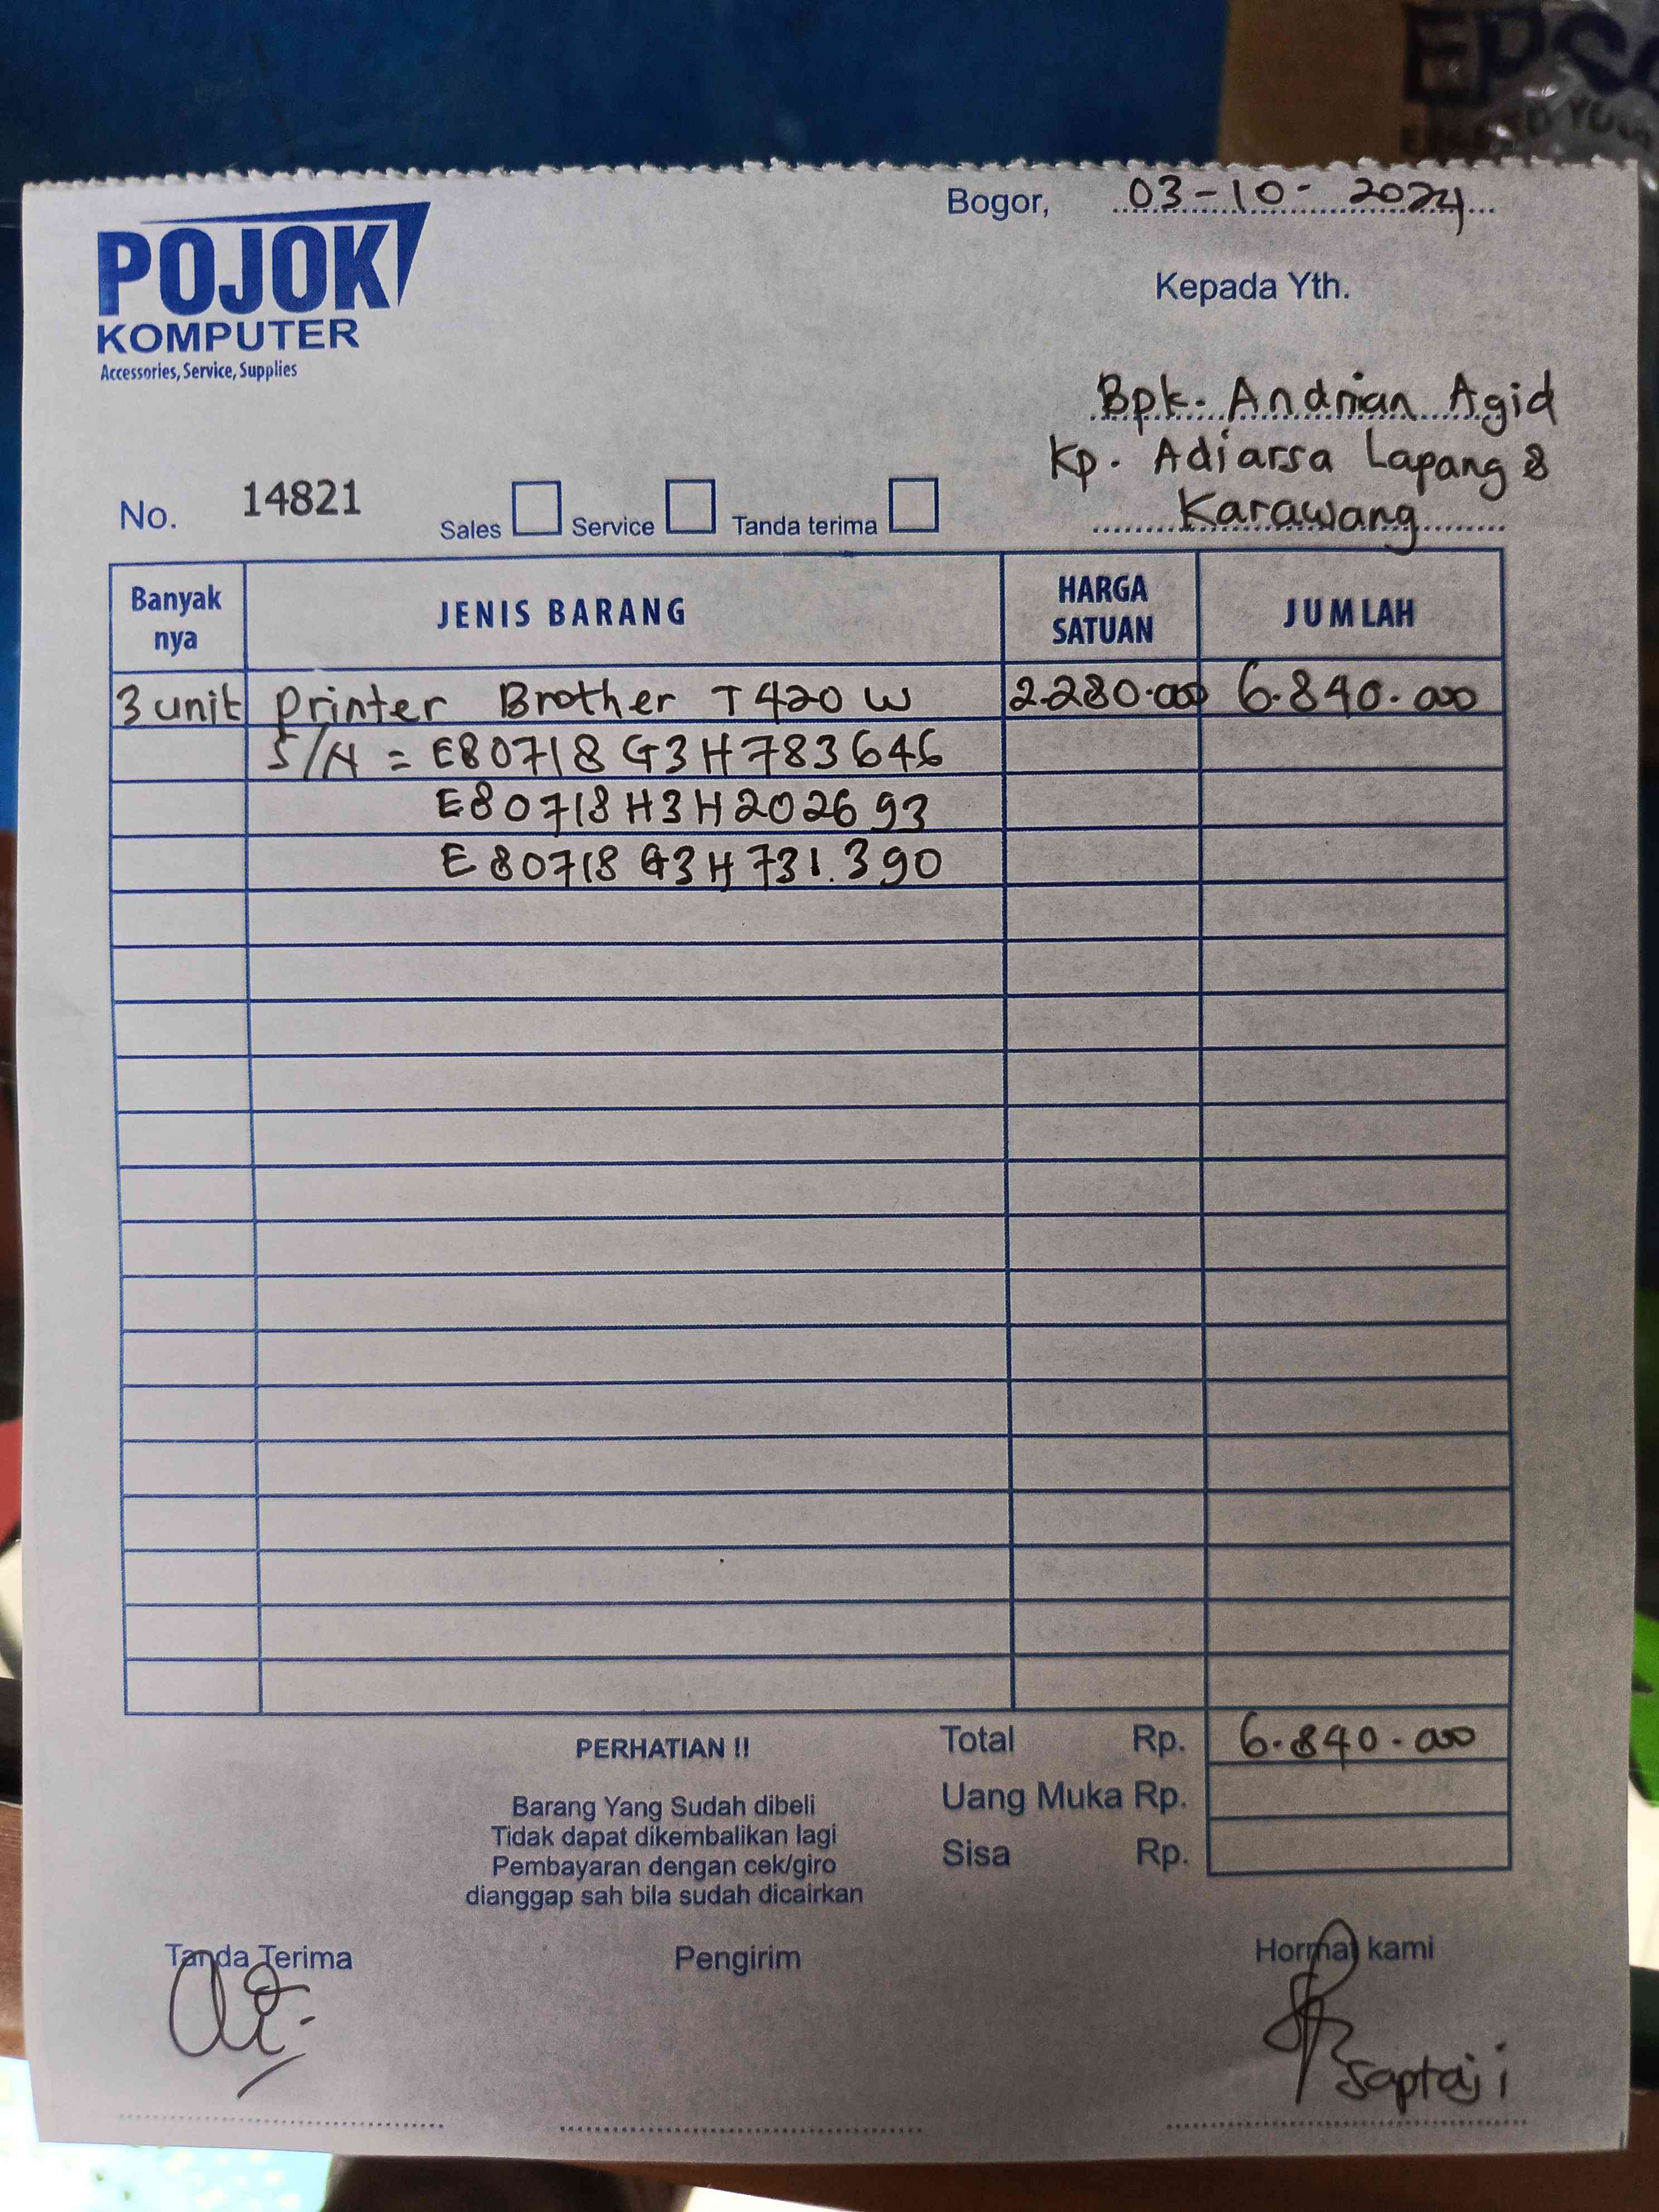 EPSO
EXCEED YOUR
Bogor, 03-10-2024
POJOK
KOMPUTER
Accessories, Service, Supplies
Kepada Yth.
Bpk. Andrian Agid
Kp. Adiarsa Lapang 8
Karawang
No. 14821 Sales Service Tanda terima
Banyak nya JENIS BARANG HARGA SATUAN JUMLAH
3 unit Printer Brother T420 W 2.280.000 6.840.000
S/N = E80718G3H783646
E80718H3H202693
E80718G3H731.390
PERHATIAN !!
Barang Yang Sudah dibeli
Tidak dapat dikembalikan lagi
Pembayaran dengan cek/giro
dianggap sah bila sudah dicairkan
Total Rp. 6.840.000
Uang Muka Rp.
Sisa Rp.
Tanda Terima Pengirim Hormat kami
Saptaji